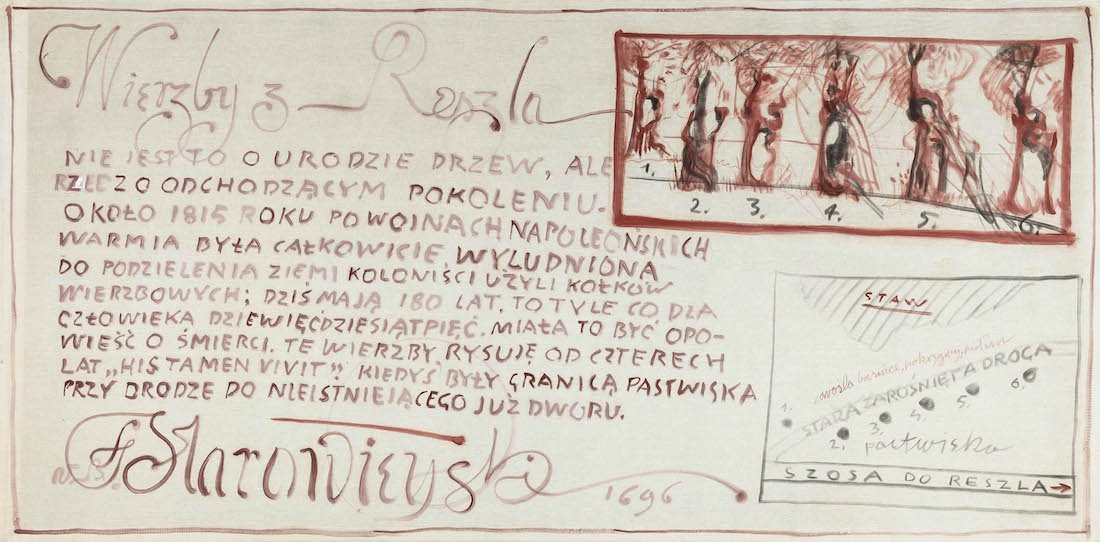 Wierzby z Reszla
NIE JEST TO O URODZIE DRZEW, ALE
RZECZ O ODCHODZĄCYM POKOLENIU.
OKOŁO 1815 ROKU PO WOJNACH NAPOLEOŃSKICH
WARMIA BYŁA CAŁKOWICIE WYLUDNIONA
DO PODZIELENIA ZIEMI KOLONIŚCI UŻYLI KOŁKÓW
WIERZBOWYCH; DZIŚ MAJĄ 180 LAT. TO TYLE CO DLA
CZŁOWIEKA DZIEWIĘĆDZIESIĄTPIĘĆ. MIAŁA TO BYĆ OPO-
WIEŚĆ O ŚMIERCI. TE WIERZBY RYSUJĘ OD CZTERECH
LAT „HIS TAMEN VIVIT”, KIEDYŚ BYŁY GRANICĄ PASTWISKA
PRZY DRODZE DO NIEISTNIEJĄCEGO JUŻ DWORU.
F. Starowieyski
1696
1.
2.
3.
4.
5.
6.
STAW
STARA ZAROŚNIĘTA DROGA
1.
2.
3.
4.
5.
6.
pastwisko
SZOSA DO RESZLA